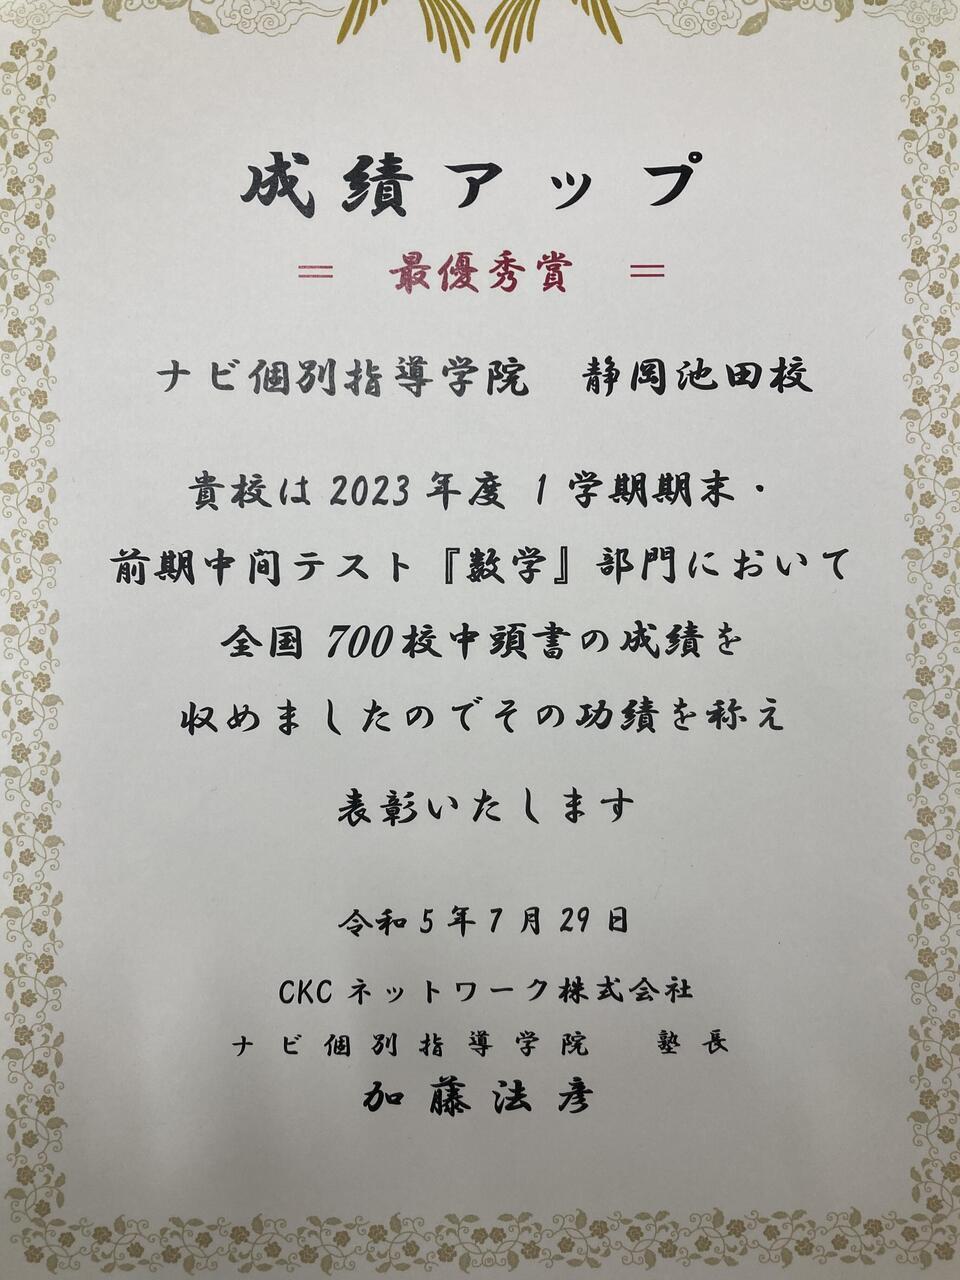 成績アップ
＝ 最優秀賞 ＝
ナビ個別指導学院 静岡池田校
貴校は2023年度 1学期期末・
前期中間テスト『数学』部門において
全国700校中頭書の成績を
収めましたのでその功績を称え
表彰いたします
令和5年7月29日
CKCネットワーク株式会社
ナビ個別指導学院 塾長
加藤法彦